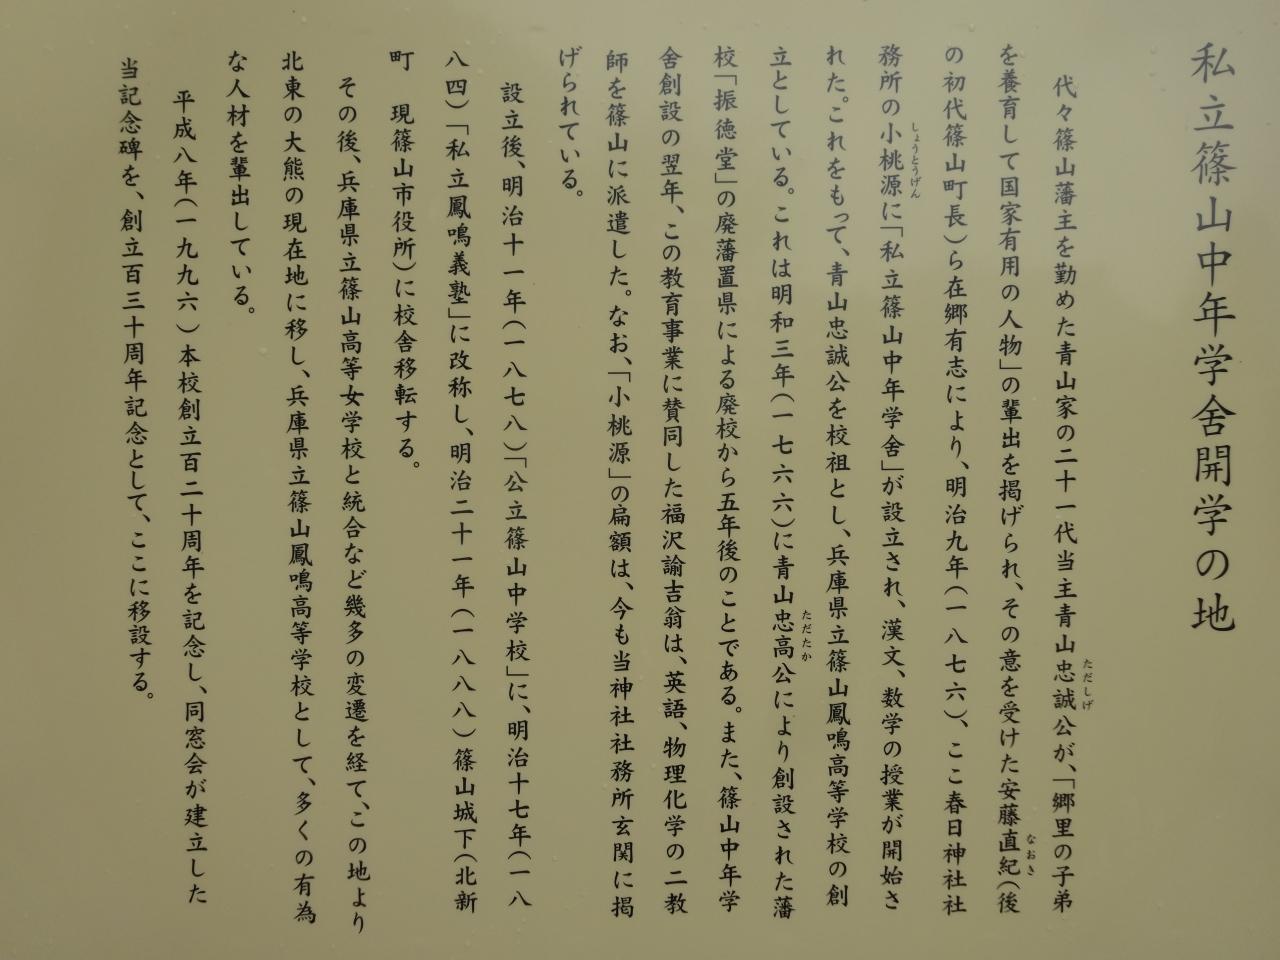 私立篠山中年学舎開学の地
代々篠山藩主を勤めた青山家の二十一代当主青山忠誠公が、「郷里の子弟
ただしげ
を養育して国家有用の人物」の輩出を掲げられ、その意を受けた安藤直紀(後
なおき
の初代篠山町長)ら在郷有志により、明治九年(一八七六)、ここ春日神社社
務所の小桃源に「私立篠山中年学舎」が設立され、漢文、数学の授業が開始さ
しょうとうげん
れた。これをもって、青山忠誠公を校祖とし、兵庫県立篠山鳳鳴高等学校の創
立としている。これは明和三年(一七六六)に青山忠高公により創設された藩
ただたか
校「振徳堂」の廃藩置県による廃校から五年後のことである。また、篠山中年学
舎創設の翌年、この教育事業に賛同した福沢諭吉翁は、英語、物理化学の二教
師を篠山に派遣した。なお、「小桃源」の扁額は、今も当神社社務所玄関に掲
げられている。
設立後、明治十一年(一八七八)「公立篠山中学校」に、明治十七年(一八
八四)「私立鳳鳴義塾」に改称し、明治二十一年(一八八八)篠山城下(北新
町　現篠山市役所)に校舎移転する。
その後、兵庫県立篠山高等女学校と統合など幾多の変遷を経て、この地より
北東の大熊の現在地に移し、兵庫県立篠山鳳鳴高等学校として、多くの有為
な人材を輩出している。
平成八年(一九九六)本校創立百二十周年を記念し、同窓会が建立した
当記念碑を、創立百三十周年記念として、ここに移設する。